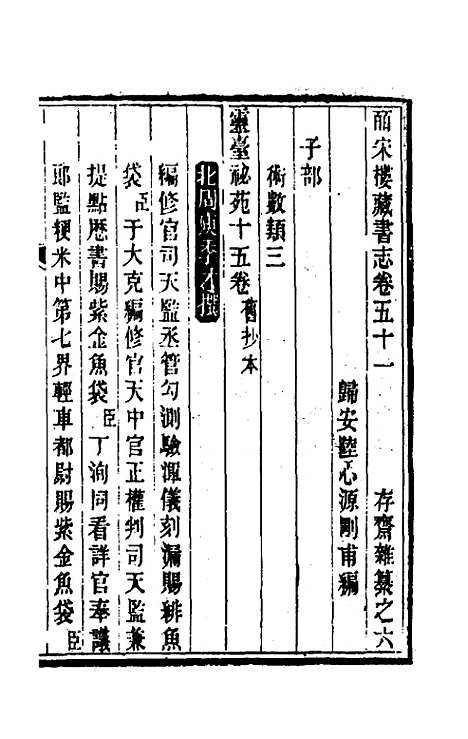 皕宋樓藏書志卷五十一　存齋雜纂之六
歸安陸心源剛甫編
子部
術數類三
靈臺祕苑十五卷舊抄本
北周庾季才撰
編修官司天監丞管勾測驗渾儀刻漏賜緋魚
袋臣于大克編修官天中官正權判司天監兼
提點歷書賜紫金魚袋臣丁洵同看詳官奉議
郎監粳米中第七界輕車都尉賜紫金魚袋臣